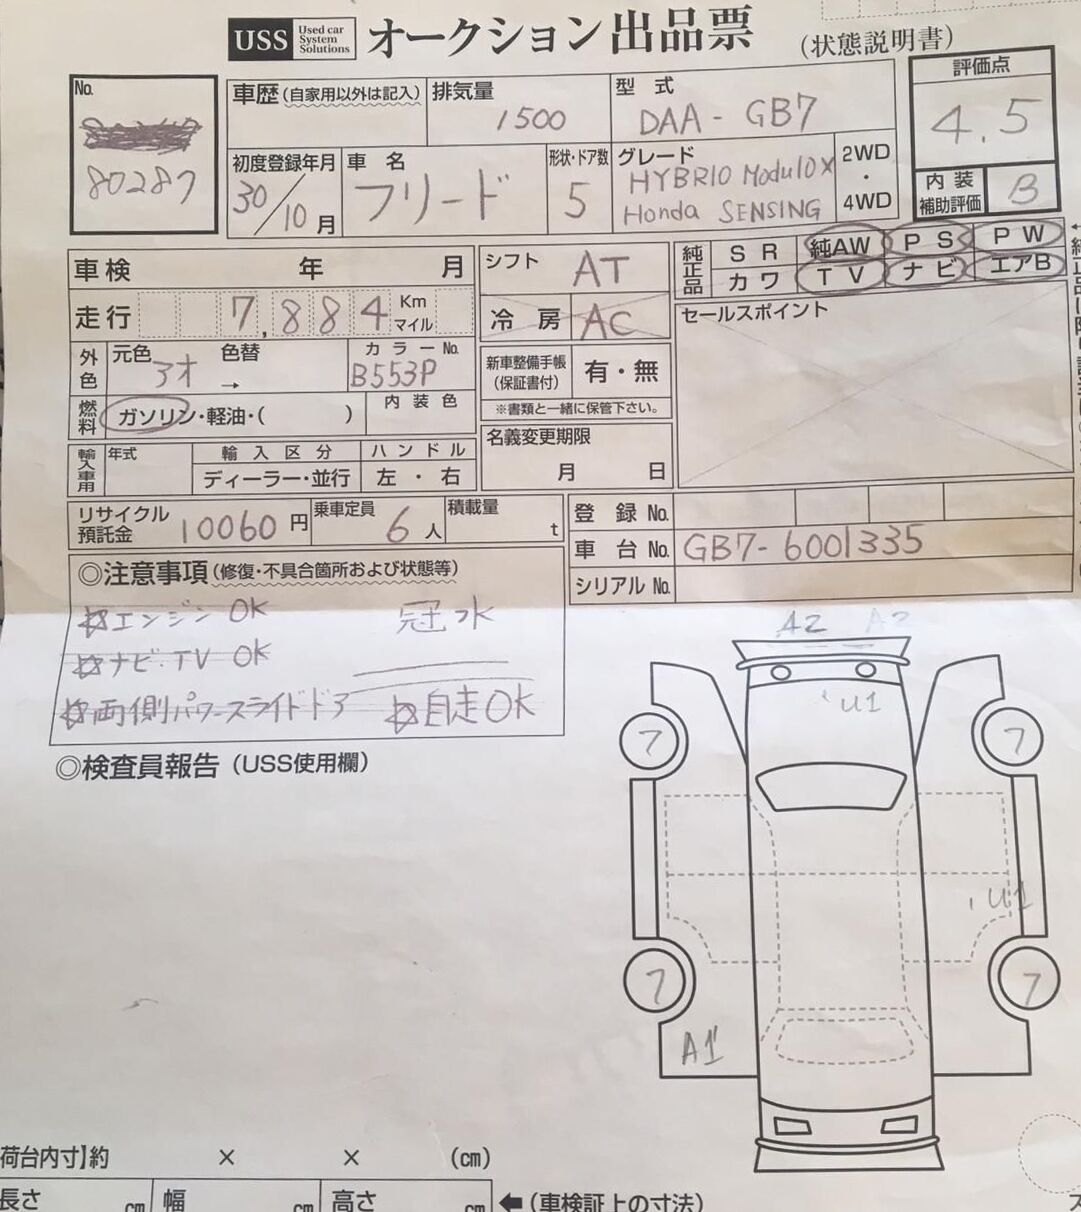 USS Used car System Solutions オークション出品票 (状態説明書)
No.
80287
車歴 (自家用以外は記入)
排気量
1500
型 式
DAA - GB7
評価点
4.5
内 装
補助評価
B
初度登録年月
30/10月
車 名
フリード
形状・ドア数
5
グレード
HYBRID ModuloX
Honda SENSING
2WD
・
4WD
車検 年 月
シフト
AT
純正品
SR 純AW PS PW
カワ TV ナビ エアB
走行 7,884 Km
マイル
冷 房 AC
セールスポイント
外色
元色 色替
アオ →
カラーNo.
B553P
新車整備手帳
(保証書付)
有・無
※書類と一緒に保管下さい。
燃料
ガソリン・軽油・( )
内装色
名義変更期限
月 日
輸入車用
年式
輸入区分
ディーラー・並行
ハンドル
左 ・ 右
リサイクル
預託金
10060円
乗車定員
6人
積載量
t
登 録 No.
車 台 No. GB7-6001335
シリアル No.
◎注意事項 (修復・不具合箇所および状態等)
☆エンジン OK 冠水
☆ナビ・TV OK
☆両側パワースライドドア ☆自走OK
◎検査員報告 (USS使用欄)
A2 A2
U1
7 7
U1
7 7
A1
荷台内寸】約 × × (cm)
長さ cm 幅 cm 高さ cm ←(車検証上の寸法)